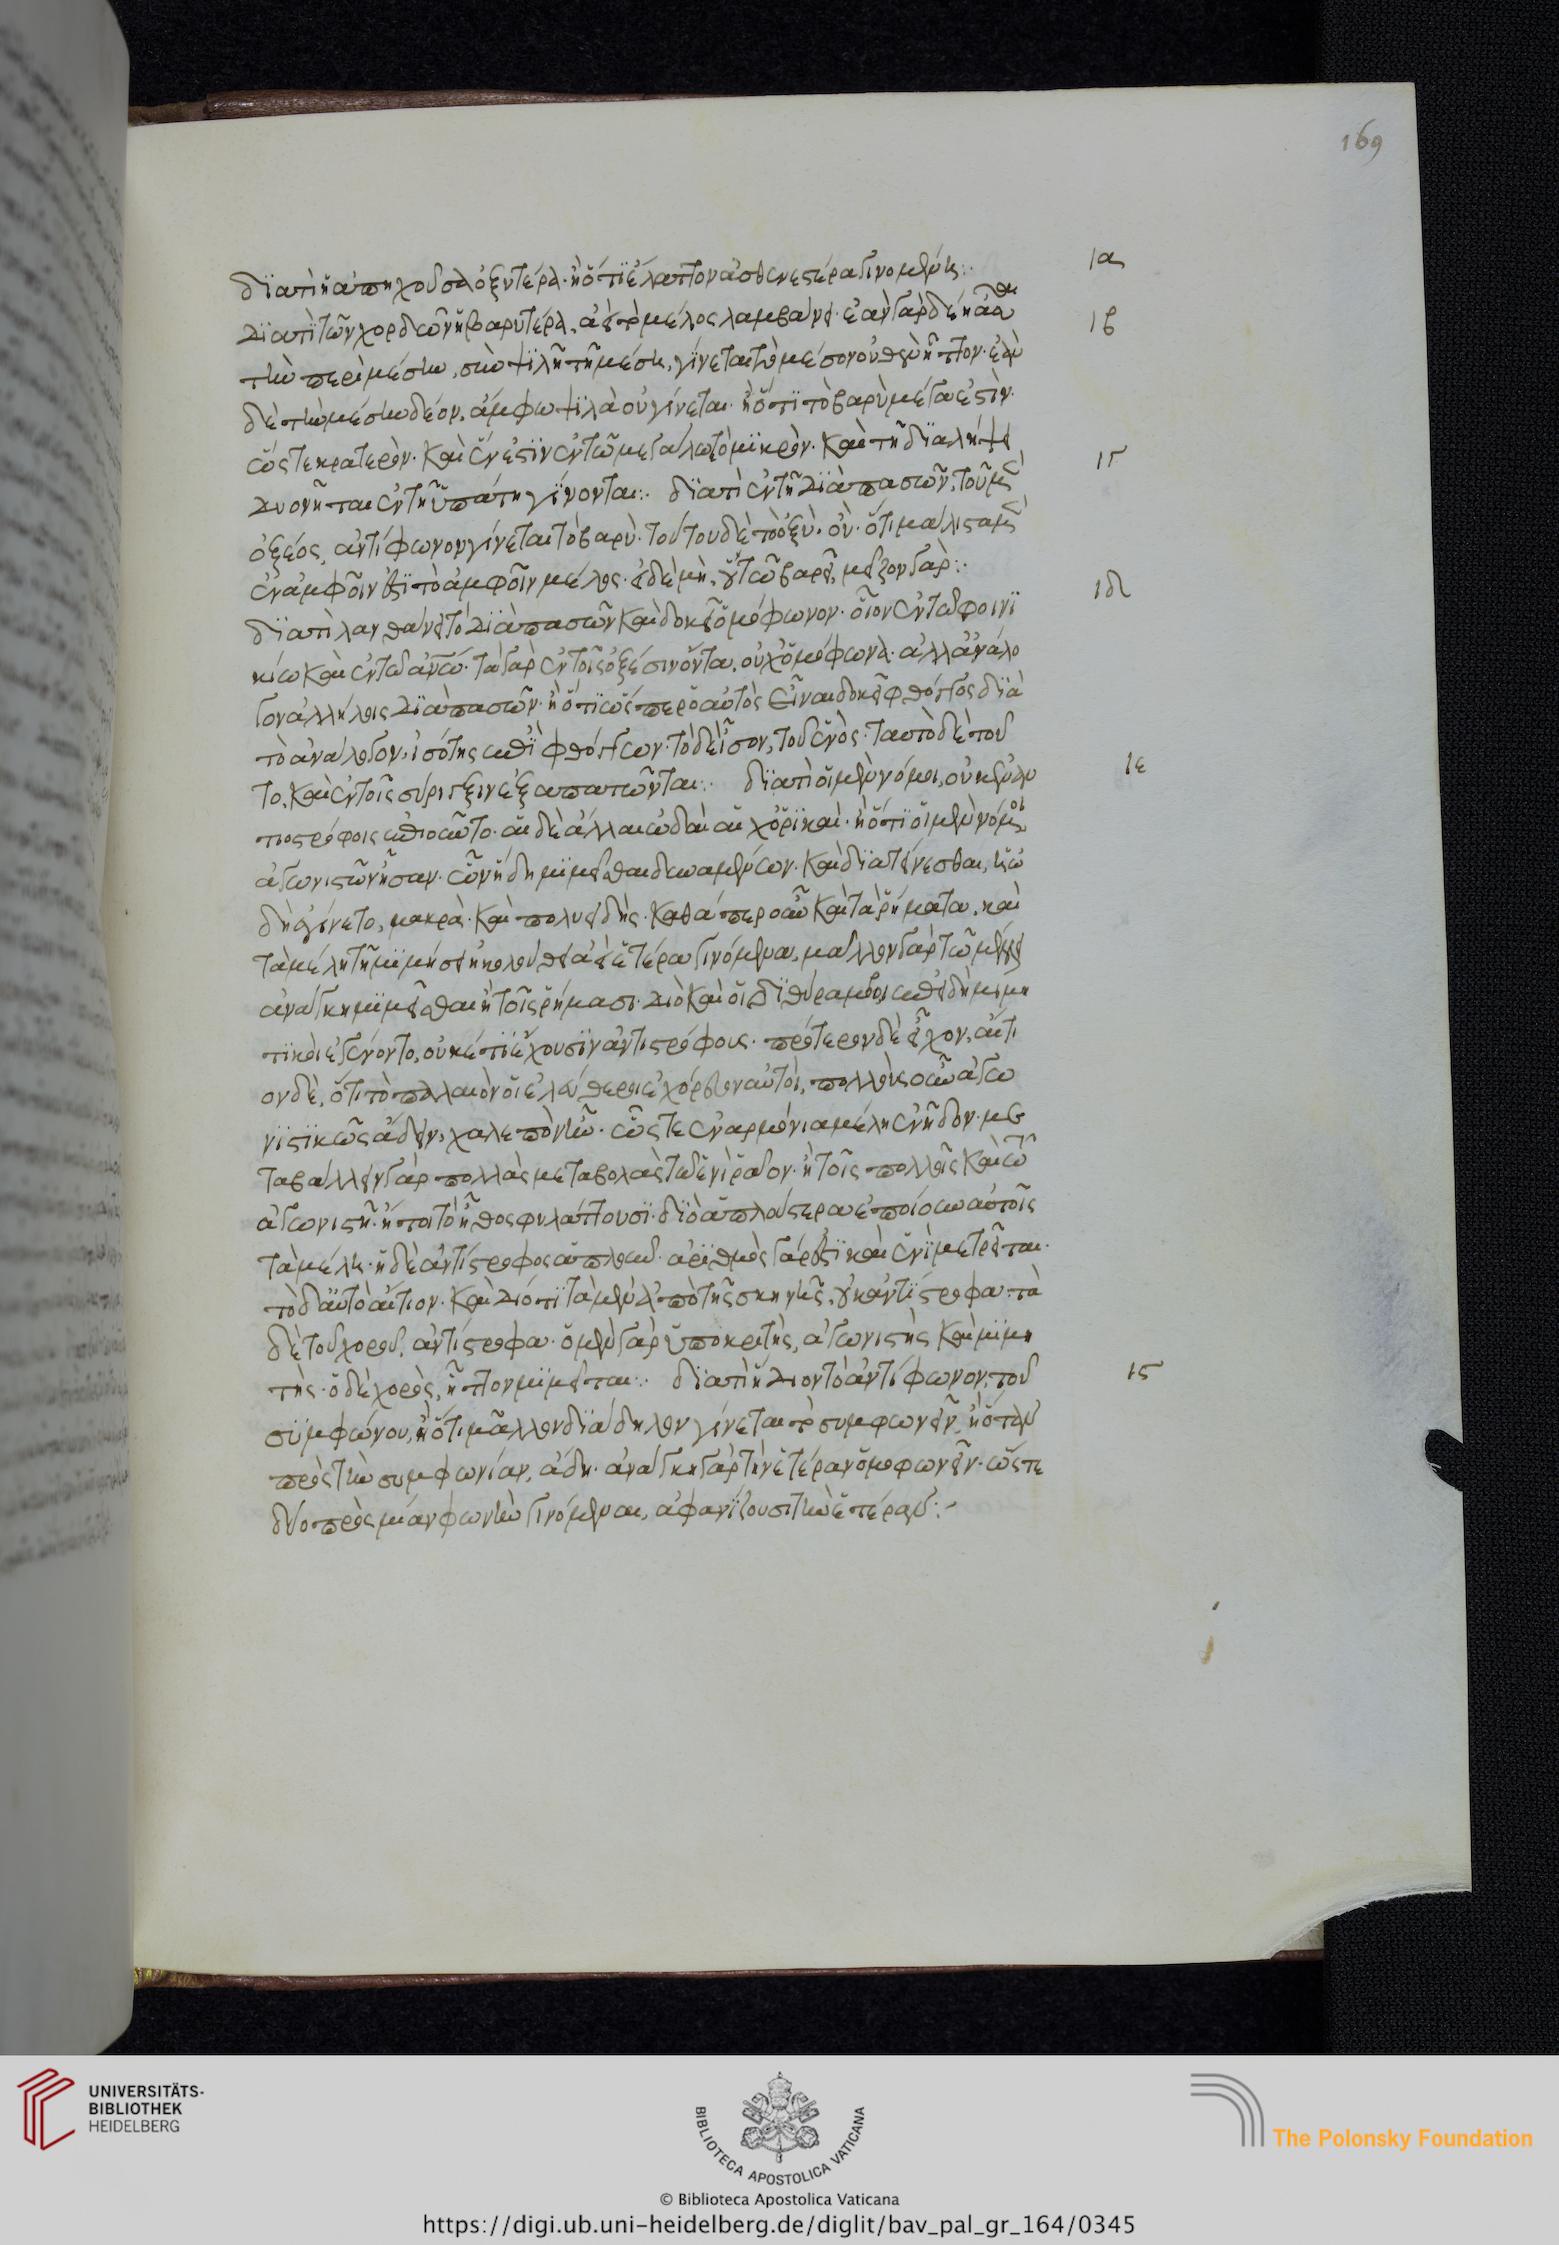 διατὶ ἡ ἀπηχοῦσα ὀξυτέρα· ἢ ὅτι ἔλαττον ἀσθενεστέρα γινομένη:·
ια
διατὶ τῶν χορδῶν ἡ βαρυτέρα, ἀεὶ τὸ μέλος λαμβάνει· ἐὰν γὰρ δέη
ιβ
τὴν περιμέσην, σὺν ψιλῇ τῇ μέση, γίνεται τὸ μέσον οὐθὲν ἧττον· ἐὰν
δὲ τὴν μέσην δέον, ἄμφω ψιλὰ οὐ γίνεται· ἢ ὅτι τὸ βαρὺ μέγα ἐστὶν·
ὥστε κρατερὸν· καὶ ἔνεστιν ἐν τῷ μεγάλω τὸ μικρὸν· καὶ τῇ διαλήψει
δύο νῆται ἐν τῇ ὑπάτη γίνονται:· διατὶ ἐν τῇ διὰ πασῶν, τοῦ μὲν
ιγ
ὀξέος, ἀντίφωνον γίνεται τὸ βαρὺ· τούτου δὲ τὸ ὀξὺ· οὐ· ὅτι μάλιστα μὲν
ἐν ἀμφοῖν ἐστὶ τὸ ἀμφοῖν μέλος· εἰ δὲ μὴ, ἐν τῷ βαρεῖ, μεῖζον γὰρ:·
διατὶ λανθάνει τὸ διὰ πασῶν καὶ δοκεῖ ὁμόφωνον· οἷον ἐν τῶ φοινι
ιδ
κίω καὶ ἐν τῶ ἀνω· τὰ γὰρ ἐν τοῖς ὀξέσιν ὄντα, οὐχ ὁμόφωνα· ἀλλ' ἀνάλο
γον ἀλλήλοις διὰ πασῶν· ἢ ὅτι ὥσπερ ὁ αὐτὸς εἶναι δοκεῖ φθόγγος διὰ
τὸ ἀνάλογον, ἰσότης ἐπὶ φθόγγων· τὸ δὲ ἴσον, τοῦ ἑνὸς· ταυτὸ δὲ τοῦ
το, καὶ ἐν τοῖς σύριγξιν ἐξαπατῶνται:· διατὶ οἱ μὲν νόμοι, οὐκ ἐν ἀν
ιε
τιστρόφοις ἐποιοῦντο· αἱ δὲ ἄλλαι ὠδαὶ αἱ χορικαὶ· ἢ ὅτι οἱ μὲν νόμοι
ἀγωνιστῶν ἦσαν· ὧν ἤδη μιμεῖσθαι δυναμένων· καὶ διατείνεσθαι, ἡ ὠ
δὴ ἐγίνετο, μακρὰ· καὶ πολυειδής· καθάπερ οὖν καὶ τὰ ῥήματα, καὶ
τὰ μέλη τῇ μιμήσει ἠκολούθει ἀεὶ ἕτερα γινόμενα, μᾶλλον γὰρ τῶ μέλει
ἀνάγκη μιμεῖσθαι ἢ τοῖς ῥήμασι· διὸ καὶ οἱ διθύραμβοι ἐπειδὴ μιμη
τικοὶ ἐγένοντο, οὐκέτι ἔχουσιν ἀντιστρόφους· πρότερον δὲ εἶχον, αἴτι
ον δὲ, ὅτι τὸ παλαιὸν οἱ ἐλεύθεροι ἐχόρευον αὐτοὶ, πολλοὺς οὖν ἀγω
νιστικῶς ἄδειν, χαλεπὸν ἦν· ὥστε ἐναρμόνια μέλη ἐνῆδον· με
ταβάλλειν γὰρ πολλὰς μεταβολὰς τῶ ἑνὶ ῥᾶον· ἢ τοῖς πολλοῖς καὶ τῶ
ἀγωνιστῆ· ἢ τοῖ τὸ ἦθος φυλάττουσι· διὸ ἁπλούστερα ἐποίουν αὐτοῖς
τὰ μέλη· ἡ δὲ ἀντίστροφος ἁπλοῦν· ἀριθμὸς γάρ ἐστι καὶ ἑνὶ μετρεῖται·
τὸ δ' αὐτὸ αἴτιον· καὶ διότι τὰ μὲν ἀπὸ τῆς σκηνῆς, οὐκ ἀντίστροφα· τὰ
δὲ τοῦ χοροῦ, ἀντίστροφα· ὁ μὲν γὰρ ὑποκριτὴς, ἀγωνιστὴς καὶ μιμη
τὴς· ὁ δὲ χορὸς, ἧττον μιμεῖται:· διατὶ ἥδιον τὸ ἀντίφωνον, τοῦ
ιϛ
συμφώνου, ἢ ὅτι μᾶλλον διάδηλον γίνεται τὸ συμφωνεῖν, ἢ ὅταν
πρὸς τὴν συμφωνίαν, ἄδη· ἀνάγκη γὰρ τὴν ἑτέραν ὁμοφωνεῖν· ὥστε
δύο πρὸς μίαν φωνὴν γινόμεναι, ἀφανίζουσι τὴν ἑτέραν:-
169
UNIVERSITÄTS-
BIBLIOTHEK
HEIDELBERG
BIBLIOTECA APOSTOLICA VATICANA
The Polonsky Foundation
© Biblioteca Apostolica Vaticana
https://digi.ub.uni-heidelberg.de/diglit/bav_pal_gr_164/0345